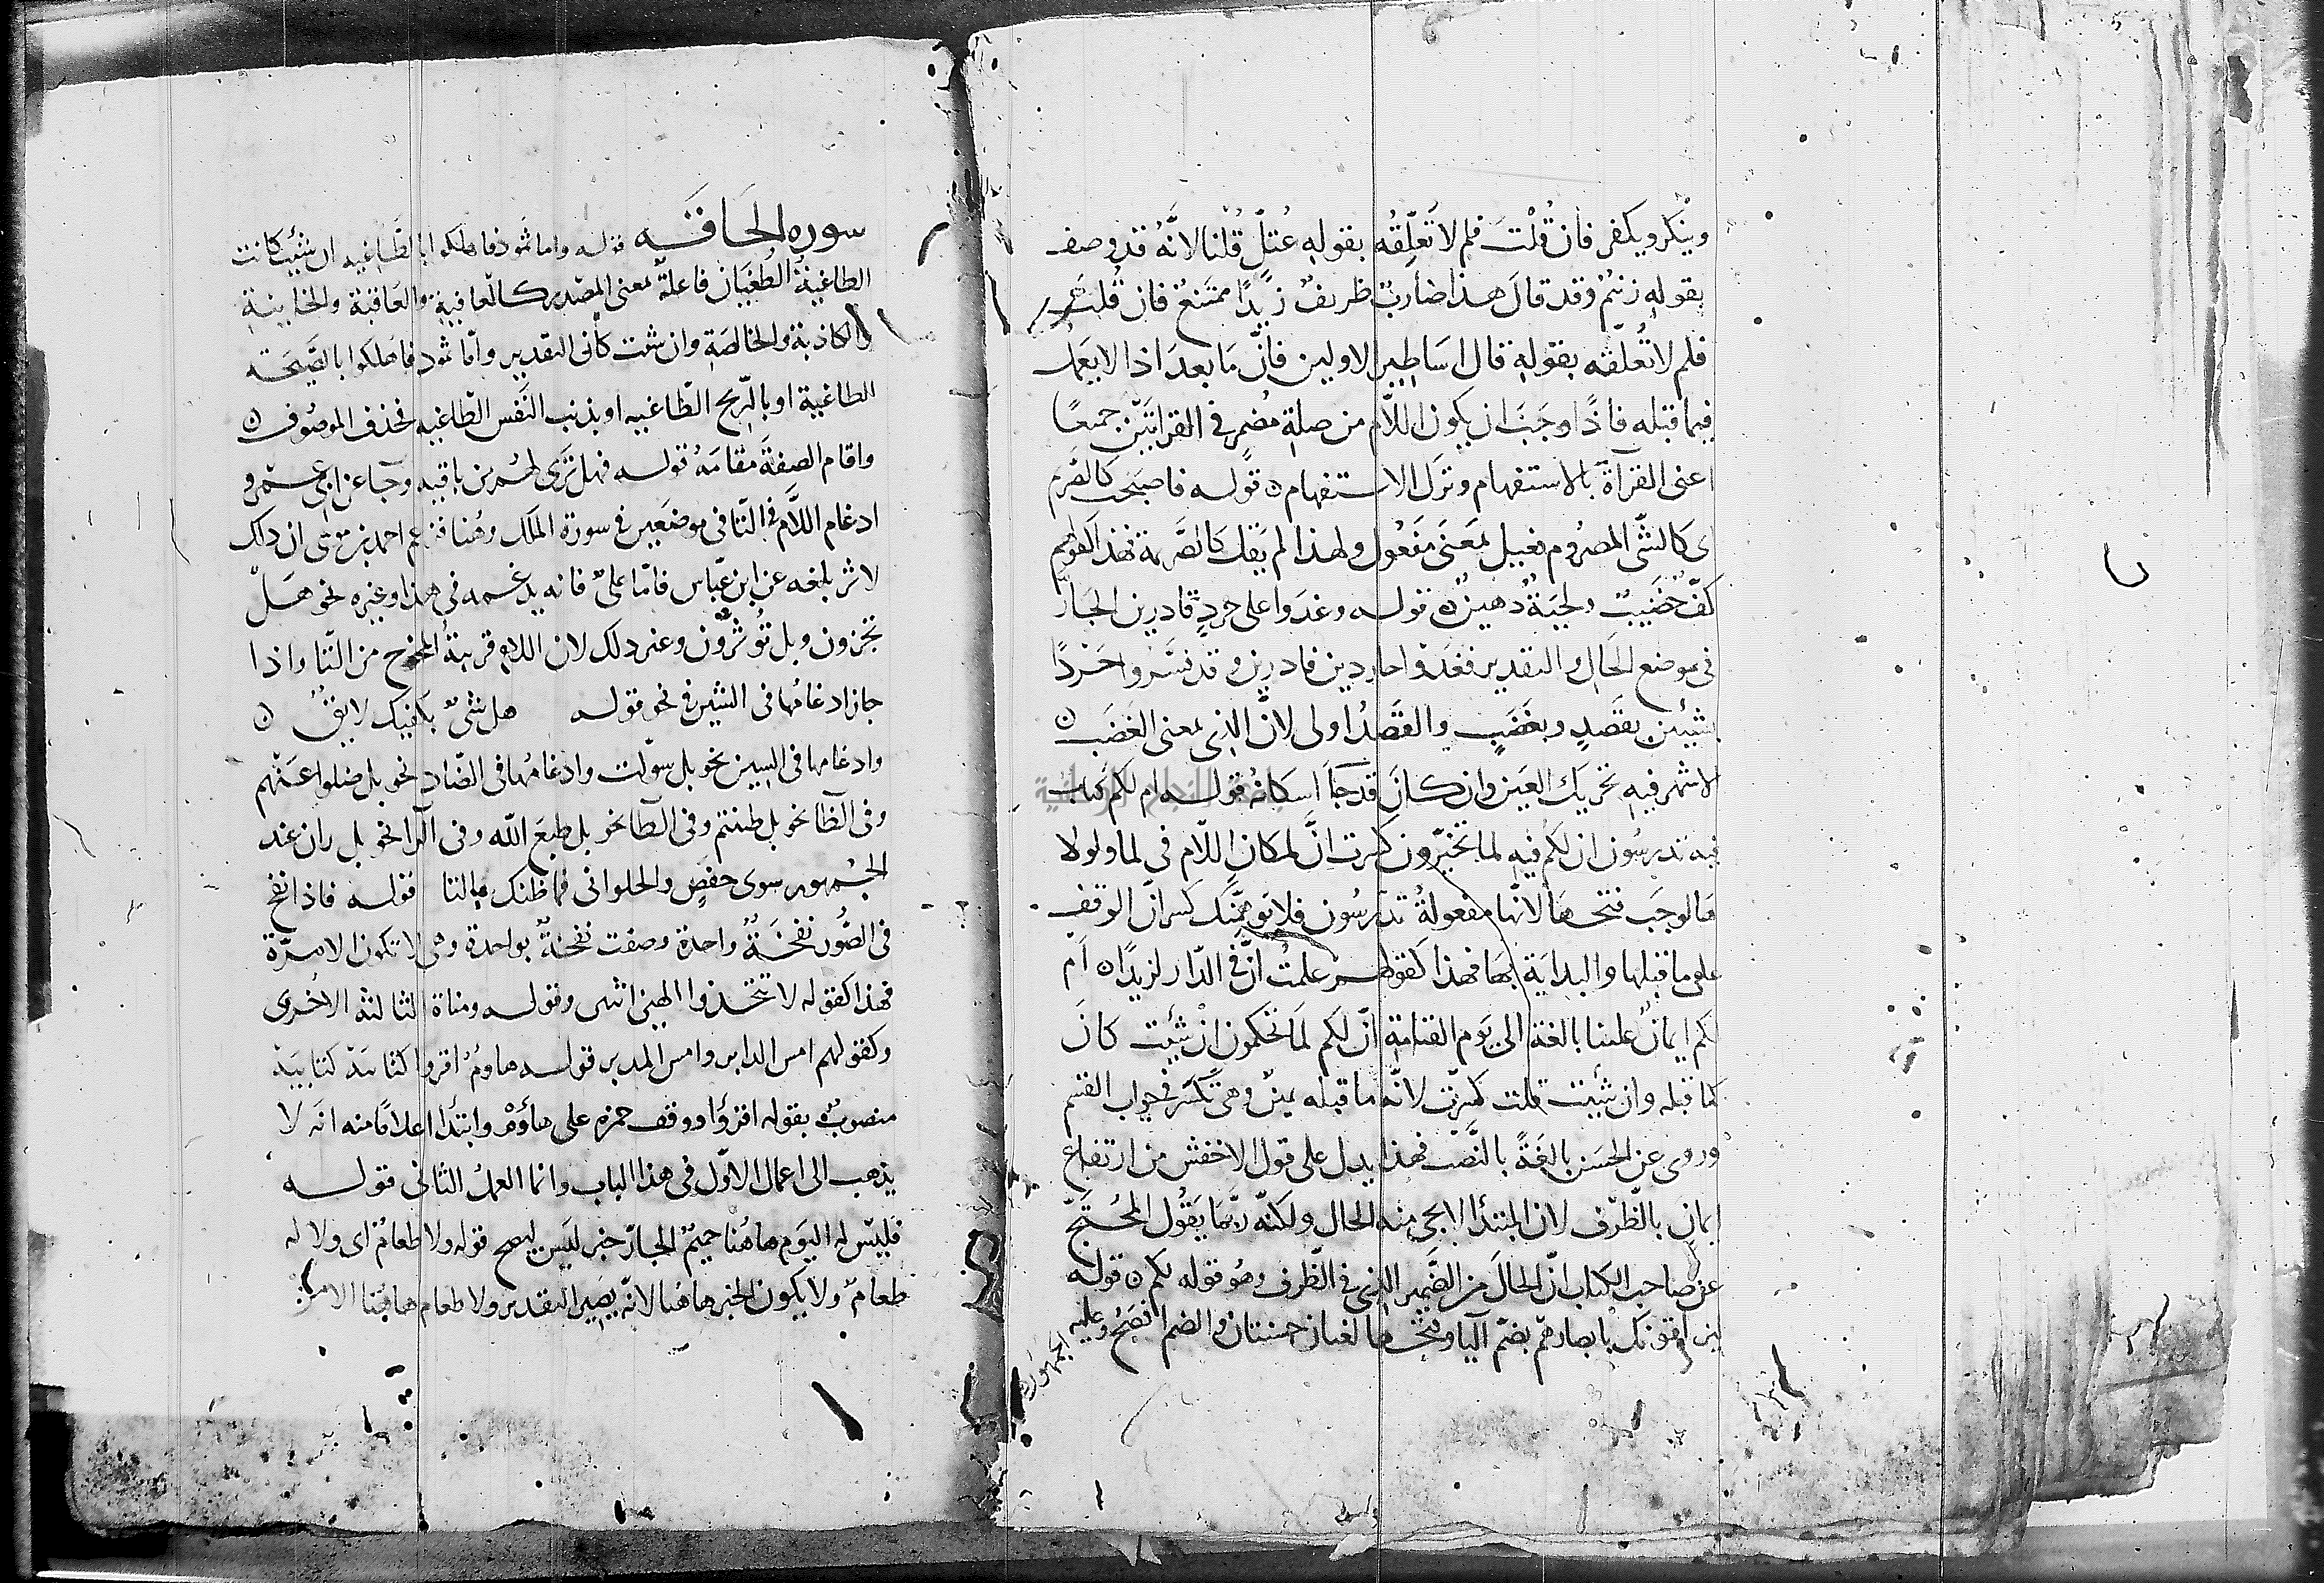 وينكر ويكفر فان قُلْتَ فلم لا تَعلّقُه بقولهِ عُتلٍّ قُلنا لانَّهُ قد وصف
بقولهِ زنيم وقد قالَ هذا ضاربٌ ظريفٌ زيدًا ممتنعٌ فان قُلتَ
فلم لا تُعلّقه بقولهِ قال اساطير الاولين فانَّ مَا بعدَ اذا لا يَعمل
فيما قبله فاذًا وجَبَ ان يكون اللّام من صلةِ مُضمرٍ في القراتَين جميعًا
اعني القرآة بالاستفهام وترك الاستفهام ن قوله فاصبحت كالصّريم
اى كالشّى المصروم فعيل بمَعنَى مَفعُول ولهذا لم يَقل كالصَّريمة فهذا كقولهم
كفّ خضيبٌ ولحيَةٌ دهينٌ ن قوله وغدَوا على حردٍ قادرين الجارّ
في موضع الحَالِ والتقدير فغدَوا حاردين قادرين وقد فسَّروا حَرْدًا
بشيئين بقَصدٍ وبغَضَبٍ والقَصدُ اولى لانَّ الذى بمعنى الغَضَب ن
الاشهر فيهِ تحريك العَين وان كانَ قد جَآ اسكانُهُ قوله ام لكم كتابٌ
فيه تدرسُون ان لكم فيهِ لما تخيّرون كسرت انَّ لمكان اللّام في لما ولولا
ها لوجَب فتحها لانّها مفعولةُ تدرسُون فلا يوهمَنّك كسر انّ الوقف
على ما قبلها والبدايَة بهَا فهذا كقولهم علمتُ انّ في الدّار لزيدًا ن ام
لكم ايمانٌ علينا بالغة الى يَوم القيامةِ انّ لكم لَما تحكمون انْ شئِت كانَ
كما قبله وان شئِت قلت كسرت لانّه ما قبله يمينٌ وهى تكسَر في جواب القسم
وروى عن الحسَن بالِغَةً بالنَّصب فهذا يدل على قول الاخفش من ارتفاع
ايمان بالظّرف لان المبتدأ لا يجى منه الحال ولكنّه ربّما يَقُول المُحتَجّ
عن صاحب الكتاب انّ الحالَ من الضَّمير الذى في الظّرف وهُو قوله لكم ن قوله
ليزلقونك بابصارهم بضم اليا وفتحها لغتان حسنتان والضم افصَح وعليه
الجمهور ن
سوره الحَاقّه قوله واما ثمود فاهلكوا بالطّاغيه ان شئِت كانت
الطاغيةُ الطُغيَان فاعلة بمعنى المصدر كالعافيةِ والعَاقبة والخاينة
والكاذبة والخالصَةِ وان شئت كان التقدير وامّا ثمود فاهلكوا بالصَّيحَة
الطاغية او بالرّيح الطّاغيه او بذنب النَّفس الطّاغيه فحذف الموصُوف ن
واقام الصفةَ مقامَهُ قوله فهل تَرَى لهم من باقيه وجآ عن ابى عَمرو
ادغام اللَّام في التّا في موضعَين في سورة المَلك وهُنا فزعم احمد بن موسى ان ذلك
لاثر بلغه عن ابن عبّاس فامّا علىٌّ فانه يدغمه في هذا وغيره نحو هَلْ
تجزون وبل تُوثرُون وغير ذلك لان اللام قريبةُ المخرج من التّا واذا
جاز ادغامُها في الشين في نحو قوله هل شىٌ بكفيك لايقُ ن
وادغامها في السِين نحو بل سوّلت وادغامُها في الضّاد نحو بل ضلوا عَنْهم
وفى الظّا نحو بل ظننتم وفى الطا نحو بل طبعَ الله وفى الرا نحو بل ران عند
الجمْهور سوى حفصٍ والحلوانى فما ظنك بالتا قوله فاذا نفخ
في الصُّور نفخَةٌ واحدة وصفت نفخةٌ بواحدة وهى لا تكون الا مرّة
فهذا كقوله لا تتخذوا الهين اثنين وقوله ومناة الثالثة الاخْرى
وكقولهم امس الدابر وامس المدبر قوله هاومُ اقروا كتابيَهْ كتابيَهْ
منصوبٌ بقوله اقرؤا ووقف حمزه على هاؤُمْ وابتدا اعلامًا منه انّه لا
يذهب الى اعمال الاوّل في هذا الباب وانما العمل الثانى قوله
فليسَ له اليَوم هاهُنا حميمٌ الجارّ خبر ليَس ليصح قوله ولا طعامٌ اى ولا له
طعامٌ ولا يكون الخبر هاهُنا لانّه يصير التقدير ولا طعام هاهُنا الا من